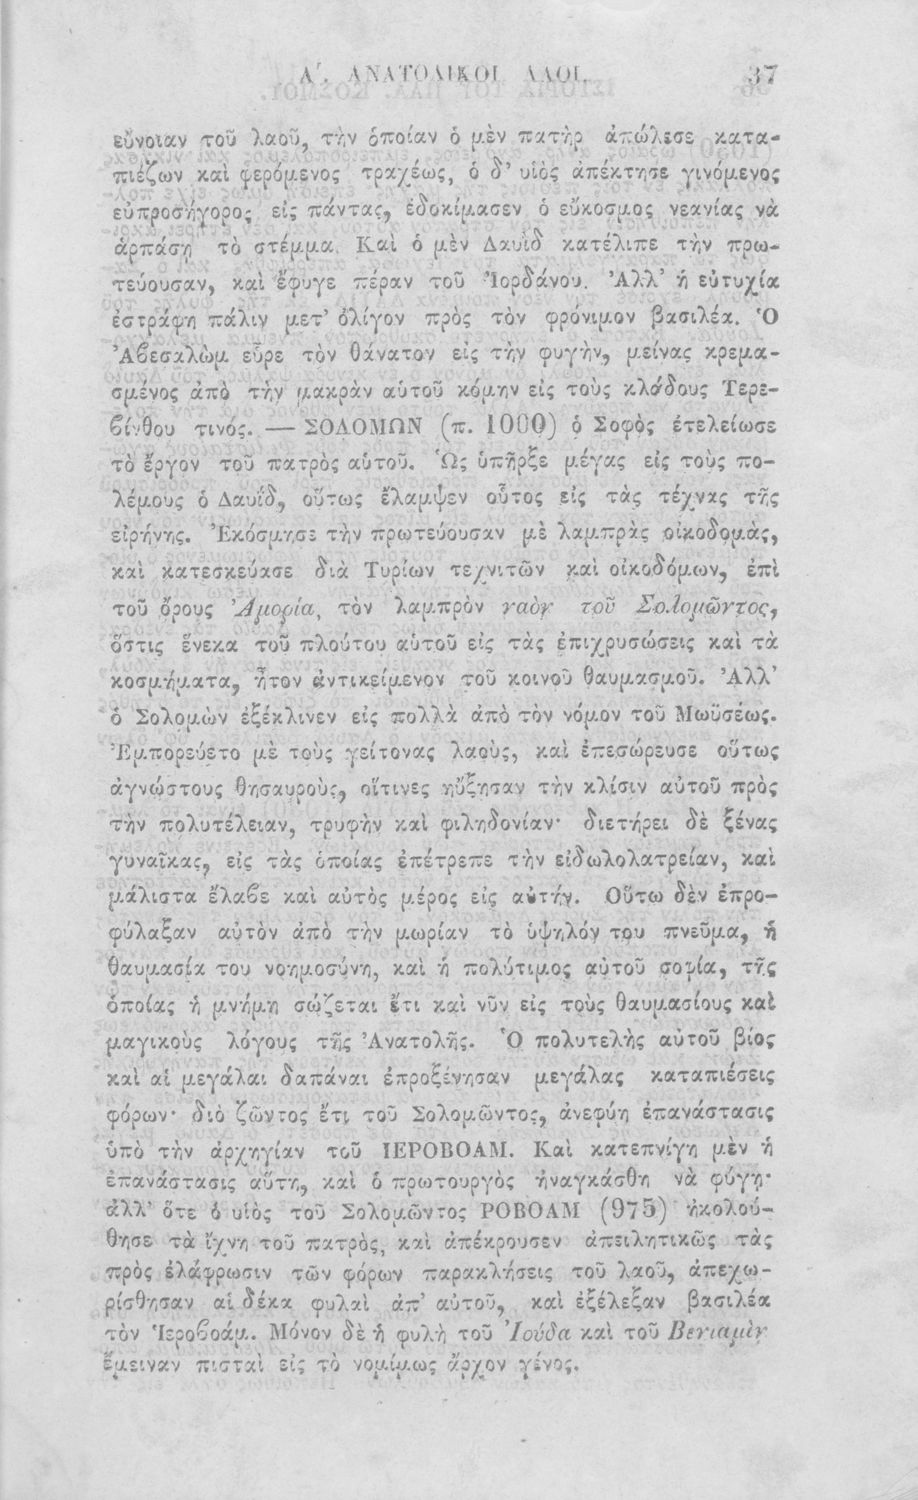 Α΄. ΑΝΑΤΟΛΙΚΟΙ ΛΑΟΙ. 37
εὔνοιαν τοῦ λαοῦ, τὴν ὁποίαν ὁ μὲν πατὴρ ἀπώλεσε κατα-
πιέζων καὶ φερόμενος τραχέως, ὁ δ' υἱὸς ἀπέκτησε γινόμενος
εὐπροσήγορος εἰς πάντας, ἐδοκίμασεν ὁ εὔκοσμος νεανίας νὰ
ἁρπάσῃ τὸ στέμμα. Καὶ ὁ μὲν Δαυῒδ κατέλιπε τὴν πρω-
τεύουσαν, καὶ ἔφυγε πέραν τοῦ Ἰορδάνου. Ἀλλ' ἡ εὐτυχία
ἐστράφη πάλιν μετ' ὀλίγον πρὸς τὸν φρόνιμον βασιλέα. Ὁ
Ἀβεσαλὼμ εὗρε τὸν θάνατον εἰς τὴν φυγὴν, μείνας κρεμα-
σμένος ἀπὸ τὴν μακρὰν αὑτοῦ κόμην εἰς τοὺς κλάδους Τερε-
βίνθου τινός. — ΣΟΛΟΜΩΝ (π. 1000) ὁ Σοφὸς ἐτελείωσε
τὸ ἔργον τοῦ πατρὸς αὑτοῦ. Ὡς ὑπῆρξε μέγας εἰς τοὺς πο-
λέμους ὁ Δαυΐδ, οὕτως ἔλαμψεν οὗτος εἰς τὰς τέχνας τῆς
εἰρήνης. Ἐκόσμησε τὴν πρωτεύουσαν μὲ λαμπρὰς οἰκοδομὰς,
καὶ κατεσκεύασε διὰ Τυρίων τεχνιτῶν καὶ οἰκοδόμων, ἐπὶ
τοῦ ὄρους Ἀμορία, τὸν λαμπρὸν ναὸν τοῦ Σολομῶντος,
ὅστις ἕνεκα τοῦ πλούτου αὑτοῦ εἰς τὰς ἐπιχρυσώσεις καὶ τὰ
κοσμήματα, ἦτον ἀντικείμενον τοῦ κοινοῦ θαυμασμοῦ. Ἀλλ'
ὁ Σολομὼν ἐξέκλινεν εἰς πολλὰ ἀπὸ τὸν νόμον τοῦ Μωϋσέως.
Ἐμπορεύετο μὲ τοὺς γείτονας λαοὺς, καὶ ἐπεσώρευσε οὕτως
ἀγνώστους θησαυροὺς, οἵτινες ηὔξησαν τὴν κλίσιν αὐτοῦ πρὸς
τὴν πολυτέλειαν, τρυφὴν καὶ φιληδονίαν· διετήρει δὲ ξένας
γυναῖκας, εἰς τὰς ὁποίας ἐπέτρεπε τὴν εἰδωλολατρείαν, καὶ
μάλιστα ἔλαβε καὶ αὐτὸς μέρος εἰς αὐτήν. Οὕτω δὲν ἐπρο-
φύλαξαν αὐτὸν ἀπὸ τὴν μωρίαν τὸ ὑψηλόν του πνεῦμα, ἡ
θαυμασία του νοημοσύνη, καὶ ἡ πολύτιμος αὐτοῦ σοφία, τῆς
ὁποίας ἡ μνήμη σώζεται ἔτι καὶ νῦν εἰς τοὺς θαυμασίους καὶ
μαγικοὺς λόγους τῆς Ἀνατολῆς. Ὁ πολυτελὴς αὐτοῦ βίος
καὶ αἱ μεγάλαι δαπάναι ἐπροξένησαν μεγάλας καταπιέσεις
φόρων· διὸ ζῶντος ἔτι τοῦ Σολομῶντος, ἀνεφύη ἐπανάστασις
ὑπὸ τὴν ἀρχηγίαν τοῦ ΙΕΡΟΒΟΑΜ. Καὶ κατεπνίγη μὲν ἡ
ἐπανάστασις αὕτη, καὶ ὁ πρωτουργὸς ἠναγκάσθη νὰ φύγῃ·
ἀλλ' ὅτε ὁ υἱὸς τοῦ Σολομῶντος ΡΟΒΟΑΜ (975) ἠκολού-
θησε τὰ ἴχνη τοῦ πατρὸς, καὶ ἀπέκρουσεν ἀπειλητικῶς τὰς
πρὸς ἐλάφρωσιν τῶν φόρων παρακλήσεις τοῦ λαοῦ, ἀπεχω-
ρίσθησαν αἱ δέκα φυλαὶ ἀπ' αὐτοῦ, καὶ ἐξέλεξαν βασιλέα
τὸν Ἱεροβοάμ. Μόνον δὲ ἡ φυλὴ τοῦ Ἰούδα καὶ τοῦ Βενιαμὶν
ἔμειναν πισταὶ εἰς τὸ νομίμως ἄρχον γένος.